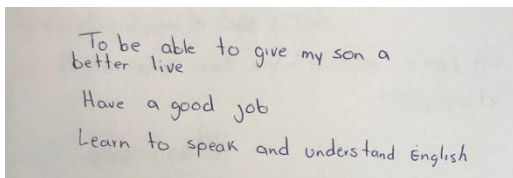 To be able to give my son a
better live
Have a good job
Learn to speak and understand English